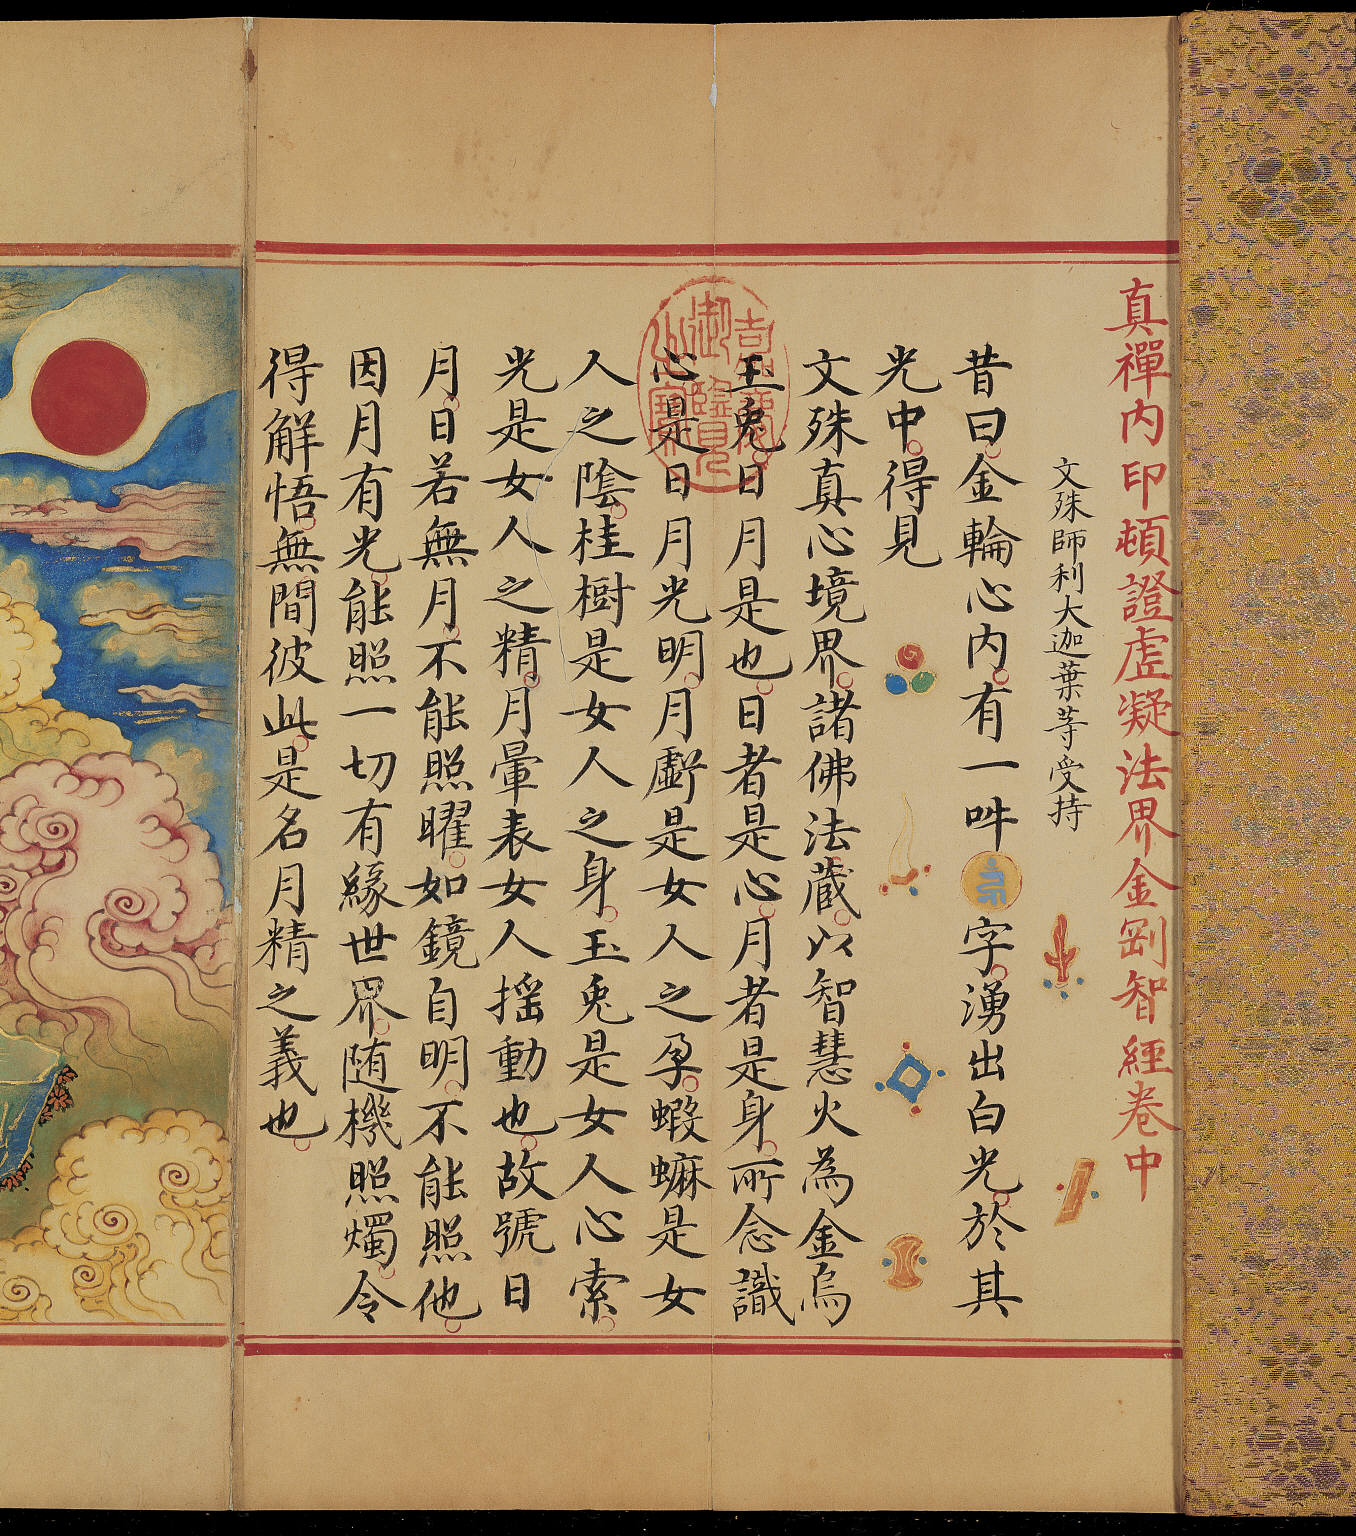 真禪内印頓證虛凝法界金剛智經卷中
文殊師利大迦葉等受持
昔曰金輪心内有一吽字湧出白光於其
光中得見
文殊真心境界諸佛法藏以智慧火為金烏
玉兔日月是也日者是心月者是身所念識
心是日月光明月虧是女人之孕蝦蟆是女
人之陰桂樹是女人之身玉兔是女人心索
光是女人之精月暈表女人搖動也故號日
月日若無月不能照曜如鏡自明不能照他
因月有光能照一切有緣世界随機照燭令
得解悟無間彼此是名月精之義也
嘉慶
御覽
之寶